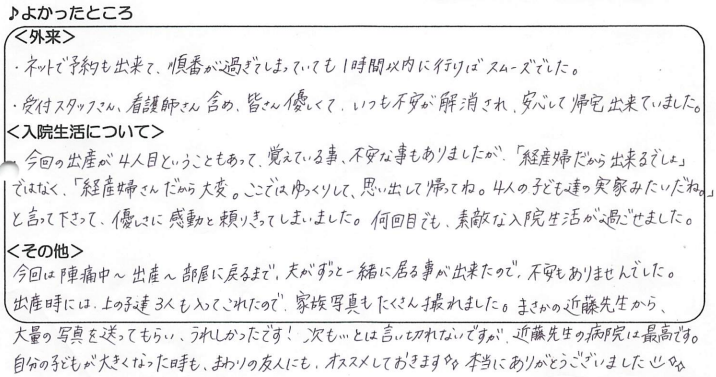 ♪よかったところ
＜外来＞
・ネットで予約も出来て、順番が過ぎてしまっていても1時間以内に行けばスムーズでした。
・受付スタッフさん、看護師さん含め、皆さん優しくて、いつも不安が解消され、安心して帰宅出来ていました。
＜入院生活について＞
・今回の出産が4人目ということもあって、覚えている事、不安な事もありましたが、「経産婦だから出来るでしょ」
ではなく、「経産婦さんだから大変。ここではゆっくりして、思い出して帰ってね。4人の子ども達の実家みたいだね。」
と言って下さって、優しさに感動と頼りきってしまいました。何回目でも、素敵な入院生活が過ごせました。
＜その他＞
今回は陣痛中〜出産〜部屋に戻るまで、夫がずっと一緒に居る事が出来たので、不安もありませんでした。
出産時には、上の子達3人も入ってこれたので、家族写真もたくさん撮れました。まさかの近藤先生から、
大量の写真を送ってもらい、うれしかったです！次も…とは言い切れないですが、近藤先生の病院は最高です。
自分の子どもが大きくなった時も、まわりの友人にも、オススメしておきます☆☆本当にありがとうございました☆☆